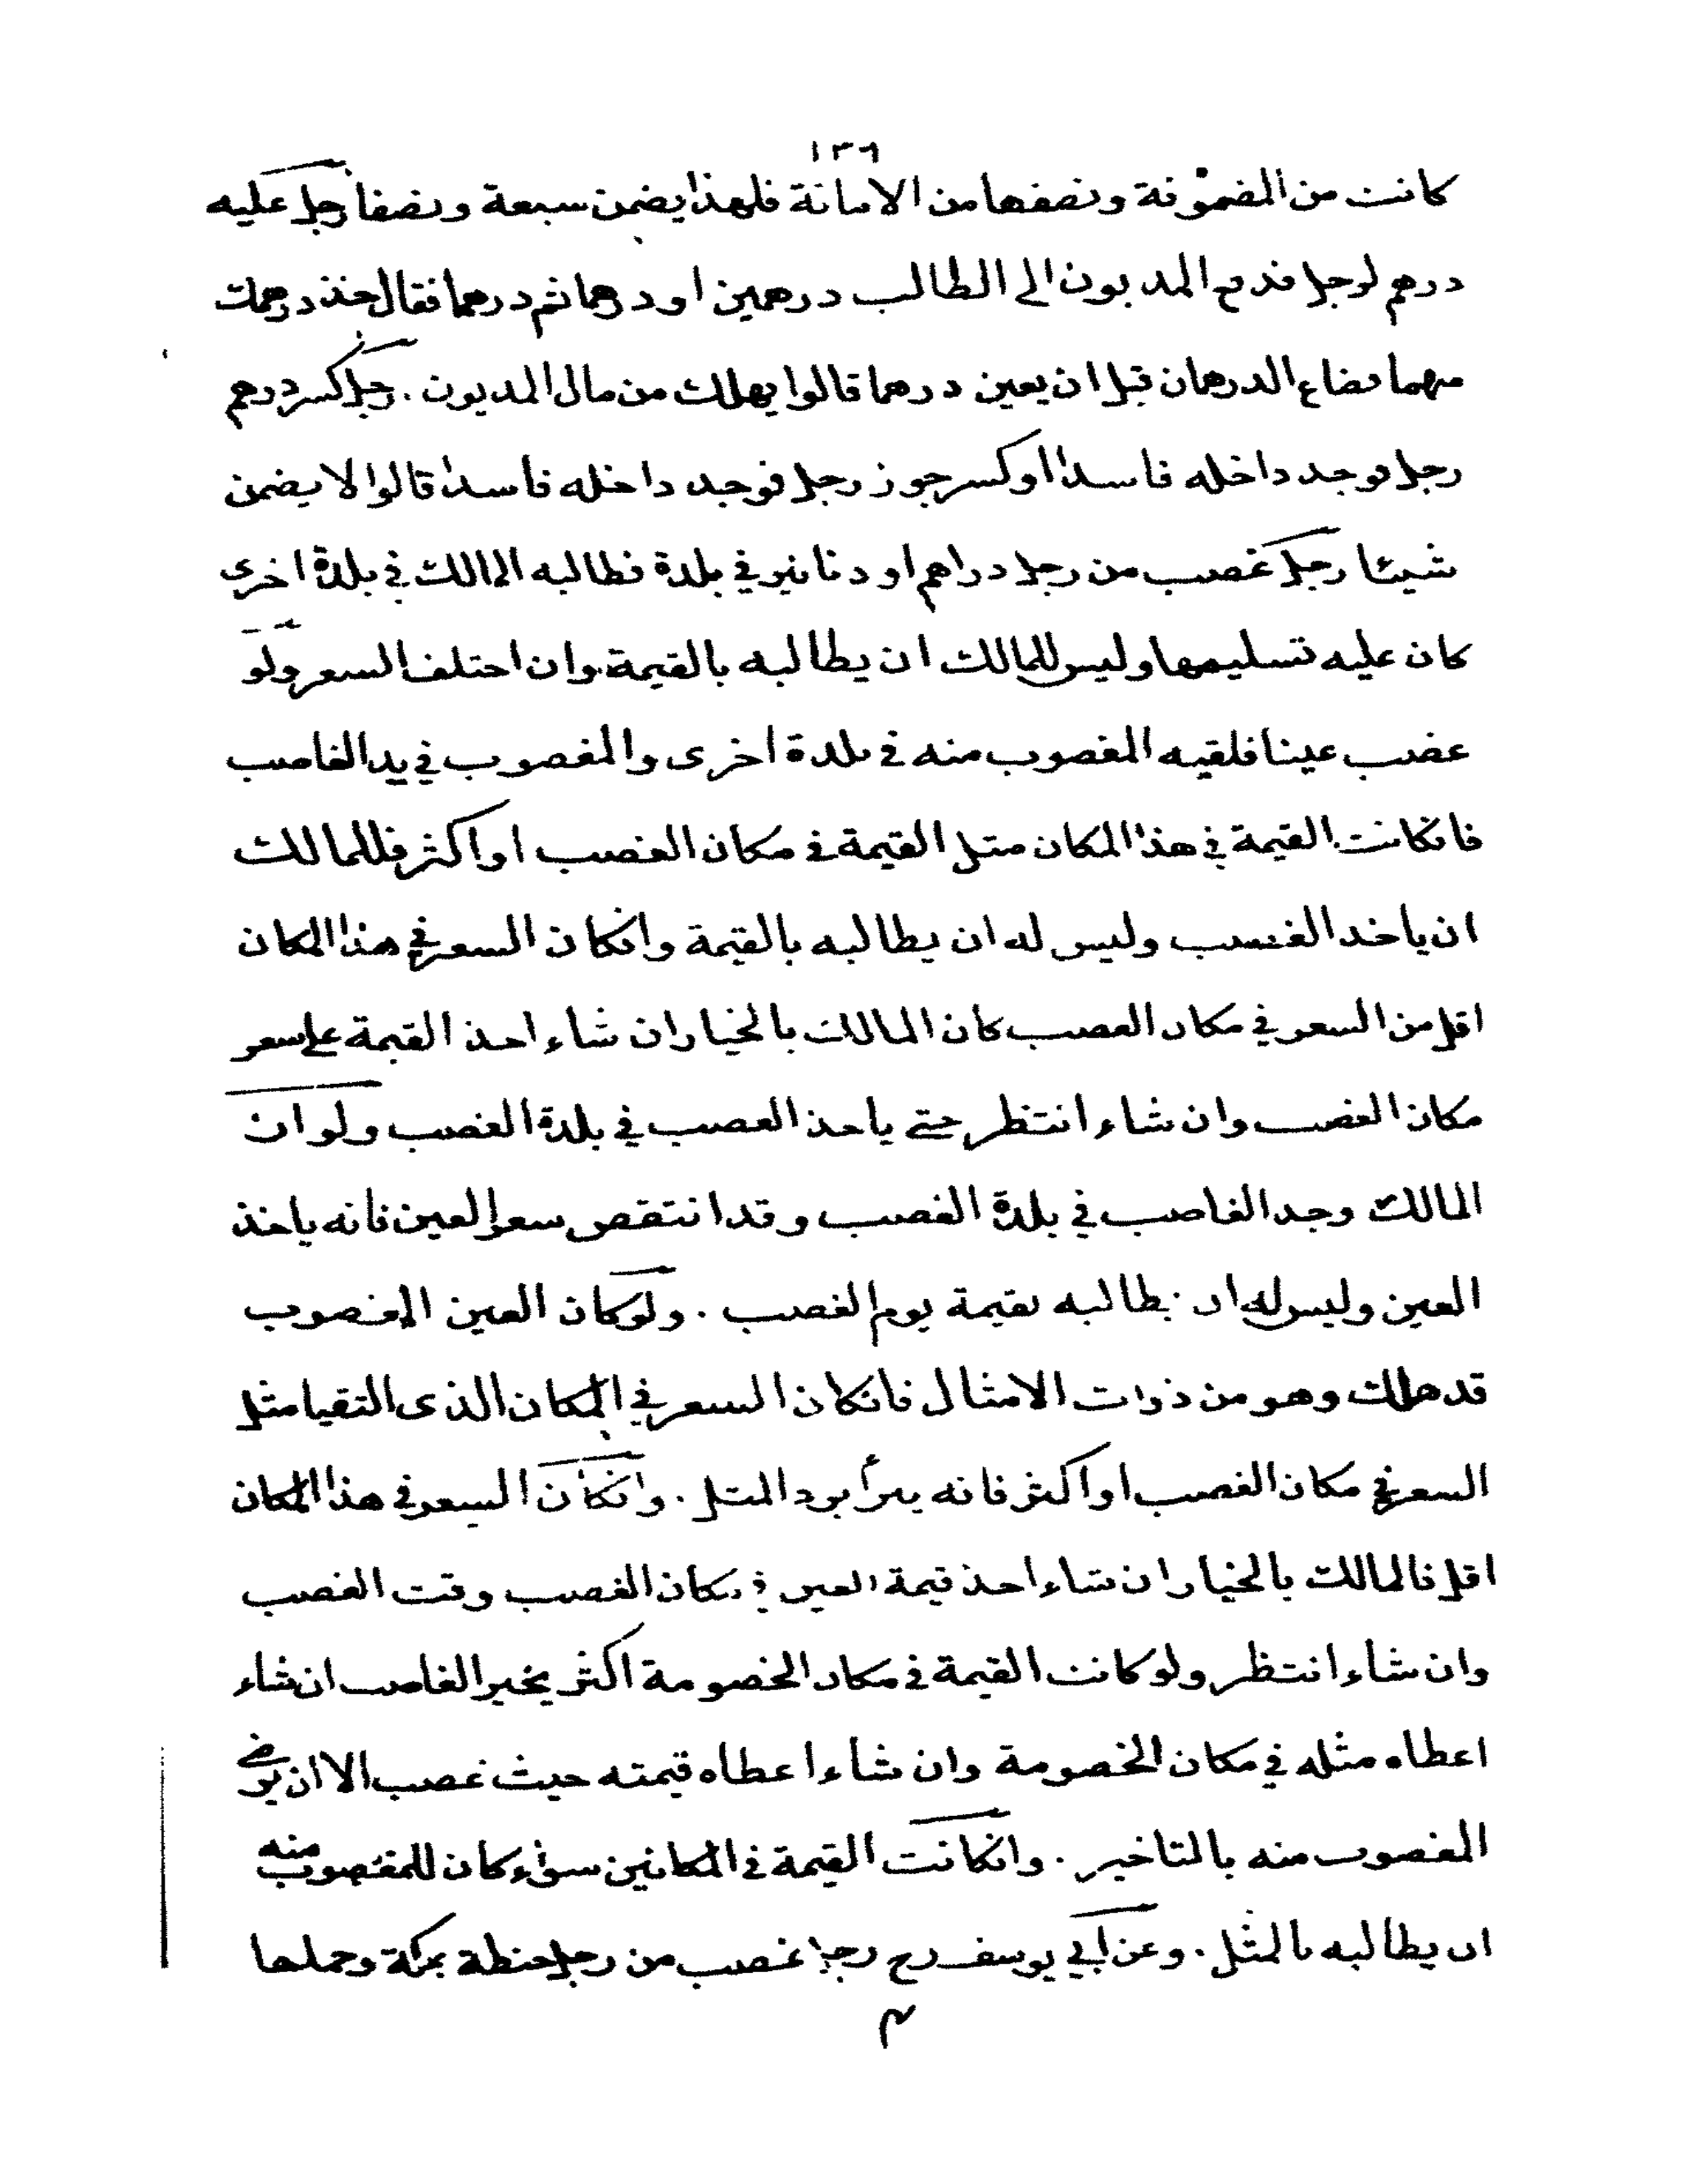 ١٣٦
كانت من المضمونة ونصفها من الامانة فلهذا يضمن سبعة ونصفا رجل عليه
درهم لرجل فدفع المديون الى الطالب درهمين او درهما ثم درهما فقال خذ درهمك
منهما فضاع الدرهمان قبل ان يعين درهما قالوا يهلك من مال المديون . رجل كسر درهم
رجل فوجد داخله فاسدا او كسر جوز رجل فوجد داخله فاسدا قالوا لا يضمن
شيئا رجل غصب من رجل دراهم او دنانير في بلدة فطالبه المالك في بلدة اخرى
كان عليه تسليمها وليس للمالك ان يطالبه بالقيمة وان اختلف السعر ولو
غصب عينا فلقيه المغصوب منه في بلدة اخرى والمغصوب في يد الغاصب
فانكانت القيمة في هذا المكان مثل القيمة في مكان الغصب او اكثر فللمالك
ان ياخذ الغصب وليس له ان يطالبه بالقيمة وانكان السعر في هذا المكان
اقل من السعر في مكان الغصب كان المالك بالخيار ان شاء اخذ القيمة على سعر
مكان الغصب وان شاء انتظر حتى ياخذ الغصب في بلدة الغصب ولو ان
المالك وجد الغاصب في بلدة الغصب وقد انتقص سعر العين فانه ياخذ
العين وليس له ان يطالبه بقيمة يوم الغصب . ولو كان العين المغصوب
قد هلك وهو من ذوات الامثال فانكان السعر في المكان الذى التقيا مثل
السعر في مكان الغصب او اكثر فانه يبرأ برد المثل . وانكان السعر في هذا المكان
اقل فالمالك بالخيار ان شاء اخذ قيمة العين في مكان الغصب وقت الغصب
وان شاء انتظر ولو كانت القيمة في مكان الخصومة اكثر يخير الغاصب ان شاء
اعطاه مثله في مكان الخصومة وان شاء اعطاه قيمته حيث غصب الا ان يرضى
المغصوب منه بالتاخير . وانكانت القيمة في المكانين سواء كان للمغصوب منه
ان يطالبه بالمثل . وعن ابي يوسف رح رجل غصب من رجل حنطة بمكة وحملها
م